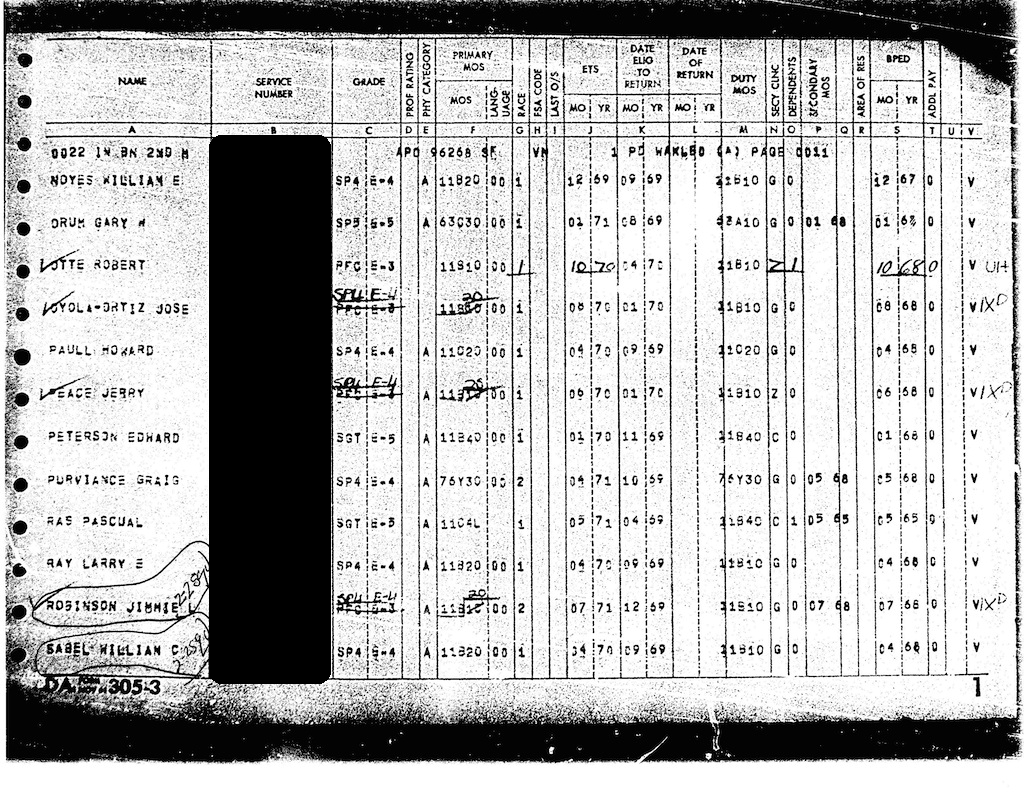 NAME SERVICE NUMBER GRADE PROF RATING PHY CATEGORY PRIMARY MOS MOS LANG-UAGE RACE FSA CODE LAST O/S ETS MO YR DATE ELIG TO RETURN MO YR DATE OF RETURN MO YR DUTY MOS SECY CLNC DEPENDENTS SECONDARY MOS AREA OF RES BPED MO YR ADDL PAY
A B C D E F G H I J K L M N O P Q R S T U V
0022 IN BN 2ND APO 96268 SF VN 1 PD PAGE 0011
NOYES WILLIAM E SP4 E-4 A 11B20 00 1 12 69 09 69 11B10 G 0 12 67 0 V
DRUM GARY W SP5 E-5 A 63C30 00 1 01 71 08 69 G 0 01 68 01 68 0 V
OTTE ROBERT PFC E-3 11B10 00 1 10 70 04 70 11B10 Z 1 10 68 0 V UH
LOYOLA-ORTIZ JOSE SP4 E-4 20 00 1 08 70 01 70 11B10 G 0 08 68 0 V IXD
PAULL HOWARD SP4 E-4 A 11C20 00 1 04 70 09 69 11C20 G 0 04 68 0 V
PEACE JERRY SP4 E-4 A 20 00 1 06 70 01 70 11B10 Z 0 06 68 0 V IXD
PETERSON EDWARD SGT E-5 A 11B40 00 1 01 70 11 69 11B40 C 0 01 68 0 V
PURVIANCE GRAIG SP4 E-4 A 76Y30 00 2 04 71 10 69 76Y30 G 0 05 68 05 68 0 V
RAS PASCUAL SGT E-5 A 11C4L 1 05 71 04 69 11B40 C 1 05 65 05 65 0 V
RAY LARRY E SP4 E-4 A 11B20 00 1 04 70 09 69 11B10 G 0 04 68 0 V
ROBINSON JIMMIE L SP4 E-4 A 20 00 2 07 71 12 69 11B10 G 0 07 68 07 68 0 V IXD
SABEL WILLIAM C SP4 E-4 A 11B20 00 1 04 70 09 69 11B10 G 0 04 68 0 V
DA FORM 305-3 1